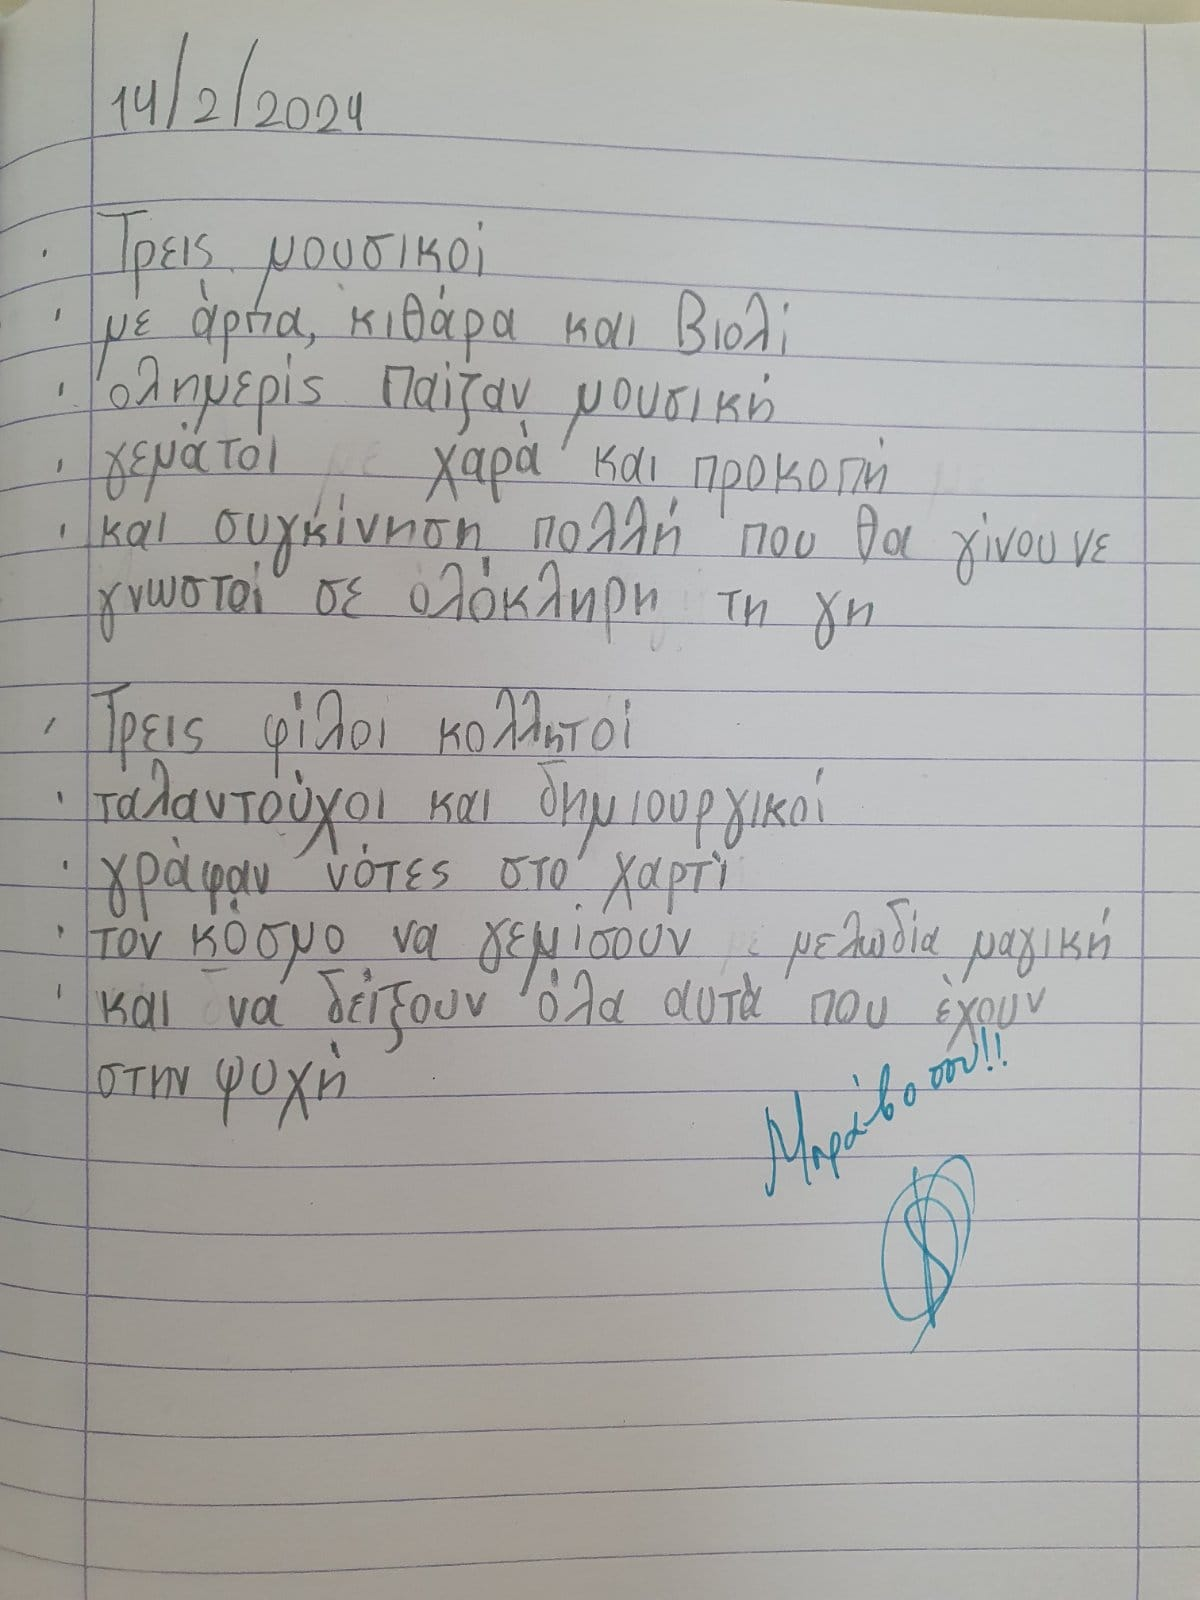 14/2/2024
Τρεις μουσικοί
με άρπα, κιθάρα και βιολί
ολημερίς παίζαν μουσική
γεμάτοι χαρά και προκοπή
και συγκίνηση πολλή που θα γίνουνε
γνωστοί σε ολόκληρη τη γη
Τρεις φίλοι κολλητοί
ταλαντούχοι και δημιουργικοί
γράφαν νότες στο χαρτί
τον κόσμο να γεμίσουν μελωδία μαγική
και να δείξουν όλα αυτά που έχουν
στην ψυχή
Μπράβο σου!!